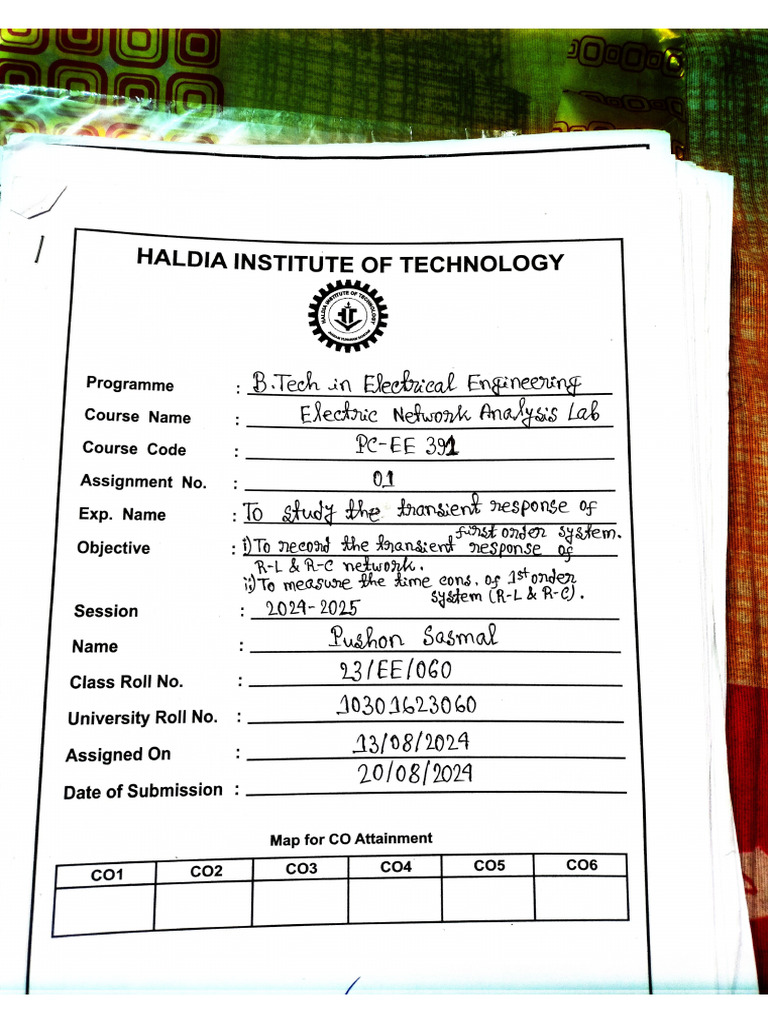 HALDIA INSTITUTE OF TECHNOLOGY
HALDIA INSTITUTE OF TECHNOLOGY
Programme : B.Tech in Electrical Engineering
Course Name : Electric Network Analysis Lab
Course Code : PC-EE 391
Assignment No. : 01
Exp. Name : To study the transient response of
first order system.
Objective : i) To record the transient response of
R-L & R-C network.
ii) To measure the time cons. of 1st order
system (R-L & R-C).
Session : 2024-2025
Name : Pushon Sasmal
Class Roll No. : 23/EE/060
University Roll No. : 10301623060
Assigned On : 13/08/2024
Date of Submission : 20/08/2024
Map for CO Attainment
CO1 CO2 CO3 CO4 CO5 CO6